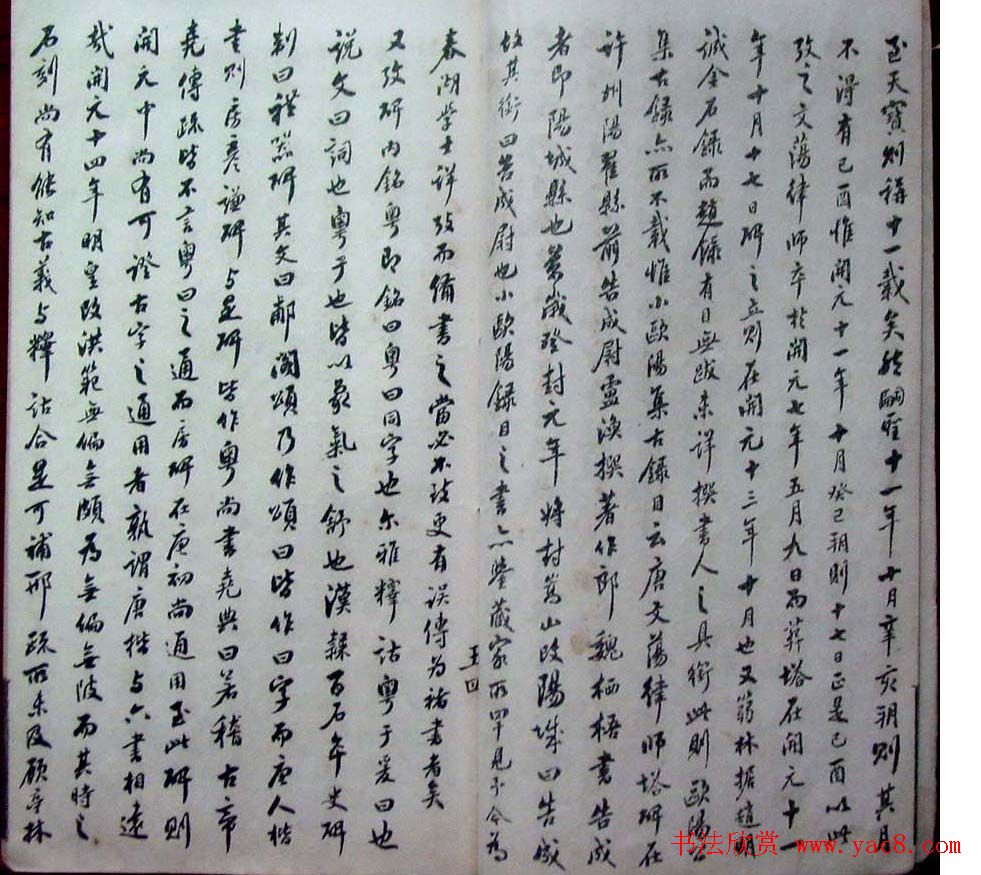 至天寶則稱十一載矣然嗣聖十一年十月辛亥朔則其月
不得有己酉惟開元十一年十月癸巳朔則十七日正是己酉以此
攷之文蕩律師卒於開元七年五月九日而葬塔在開元十一
年十月十七日碑之立則在開元十三年十月也又翁林據趙明
誠金石錄而趙錄有目無跋未詳撰書人之具銜此則歐陽公
集古錄亦所不載惟小歐陽集古錄目云唐文蕩律師塔碑在
許州陽翟縣前告成尉盧渙撰著作郎魏栖梧書告成
者即陽城縣也萬歲登封元年將封嵩山改陽城曰告成
故其銜曰告成尉也小歐陽錄目之書亦鑒藏家所罕見予今為
春湖學士詳攷而備書之當必不致更有誤傳為褚書者矣
五四
又攷碑內銘粵即銘曰粵曰同字也尔雅釋詁粵于爰曰也
說文曰詞也粵亏也皆以象氣之舒也漢隸百石卒史碑
制曰禮器碑其文曰郙閣頌乃作頌曰皆作曰字而唐人楷
書則房彥謙碑与是碑皆作粵尚書堯典曰若稽古帝
堯傳疏皆不言粵曰之通而房碑在唐初尚通用至此碑則
開元中尚有可證古字之通用者孰謂唐楷与六書相遠
哉開元十四年明皇改洪範無偏無頗為無偏無陂而其時之
石刻尚有能知古義与釋詁合是可補邢疏所未及顧亭林
书法欣赏 www.yac8.com